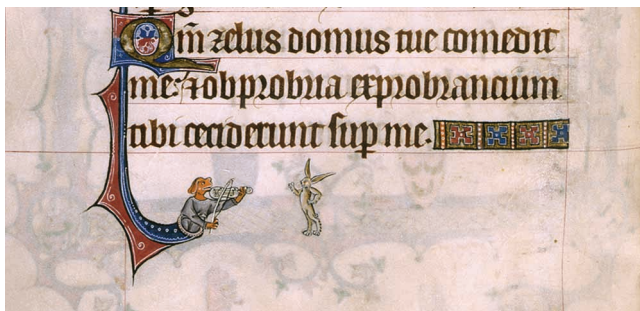 Qm̄ zelus domus tue comedit
me: ⁊ obprobria exprobrancium
tibi ceciderunt sup me.